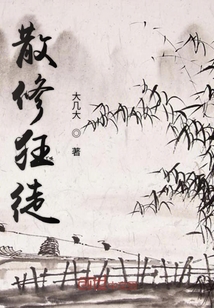 散修狂徒
大几大 ◎ 著